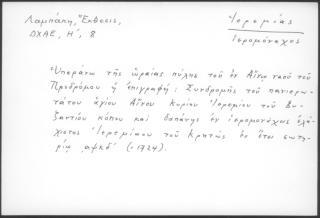 Λαμπάκη, Ἔκθεσις,
ΔΧΑΕ, Η΄, 8
Ἱερεμίας
Ἱερομόναχος
"Ὑπεράνω τῆς ὡραίας πύλης τοῦ ἐν Αἴνῳ ναοῦ τοῦ
Προδρόμου ἡ ἐπιγραφή: Συνδρομῆς τοῦ πανιερω-
τάτου ἁγίου Αἴνου κυρίου Ἱερεμίου τοῦ Βυ-
ζαντίου κόπου καὶ δαπάνης ἐν ἱερομονάχοις ἐλά-
χιστος Ἱερεμίου τοῦ Κρητὸς ἐν ἔτει σωτη-
ρίῳ αψκδ΄ (=1724).